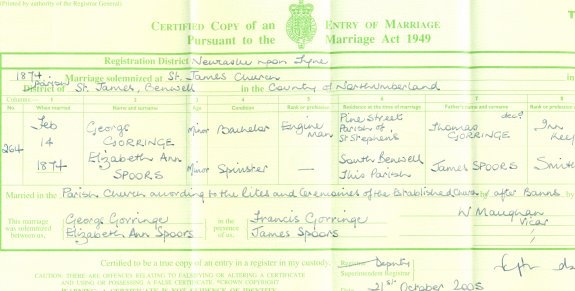 (Printed by authority of the Registrar General)
CERTIFIED COPY of an ENTRY OF MARRIAGE
Pursuant to the Marriage Act 1949
Registration District Newcastle upon Tyne
1874 Marriage solemnized at St. James Church
District of Parish St. James, Benwell in the County of Northumberland
Columns:— 1 2 3 4 5 6 7 8
No. When married Name and surname Age Condition Rank or profession Residence at the time of marriage Father's name and surname
264 Feb 14 1874 George GORRINGE Minor Bachelor Engine man Pine Street Parish of St Stephens Thomas GORRINGE decd Inn
Elizabeth Ann SPOORS Minor Spinster — South Benwell This Parish James SPOORS Smith
Married in the Parish Church according to the Rites and Ceremonies of the Established Church by after Banns by
This marriage was solemnized between us, George Gorringe Elizabeth Ann Spoors in the presence of Francis Gorringe James Spoors W Maughan Vicar
Certified to be a true copy of an entry in a register in my custody.
Deputy Superintendent Registrar
CAUTION: THERE ARE OFFENCES RELATING TO FALSIFYING OR ALTERING A CERTIFICATE
AND USING OR POSSESSING A FALSE CERTIFICATE. ©CROWN COPYRIGHT
Date 21st October 2005
WARNING: A CERTIFICATE IS NOT EVIDENCE OF IDENTITY